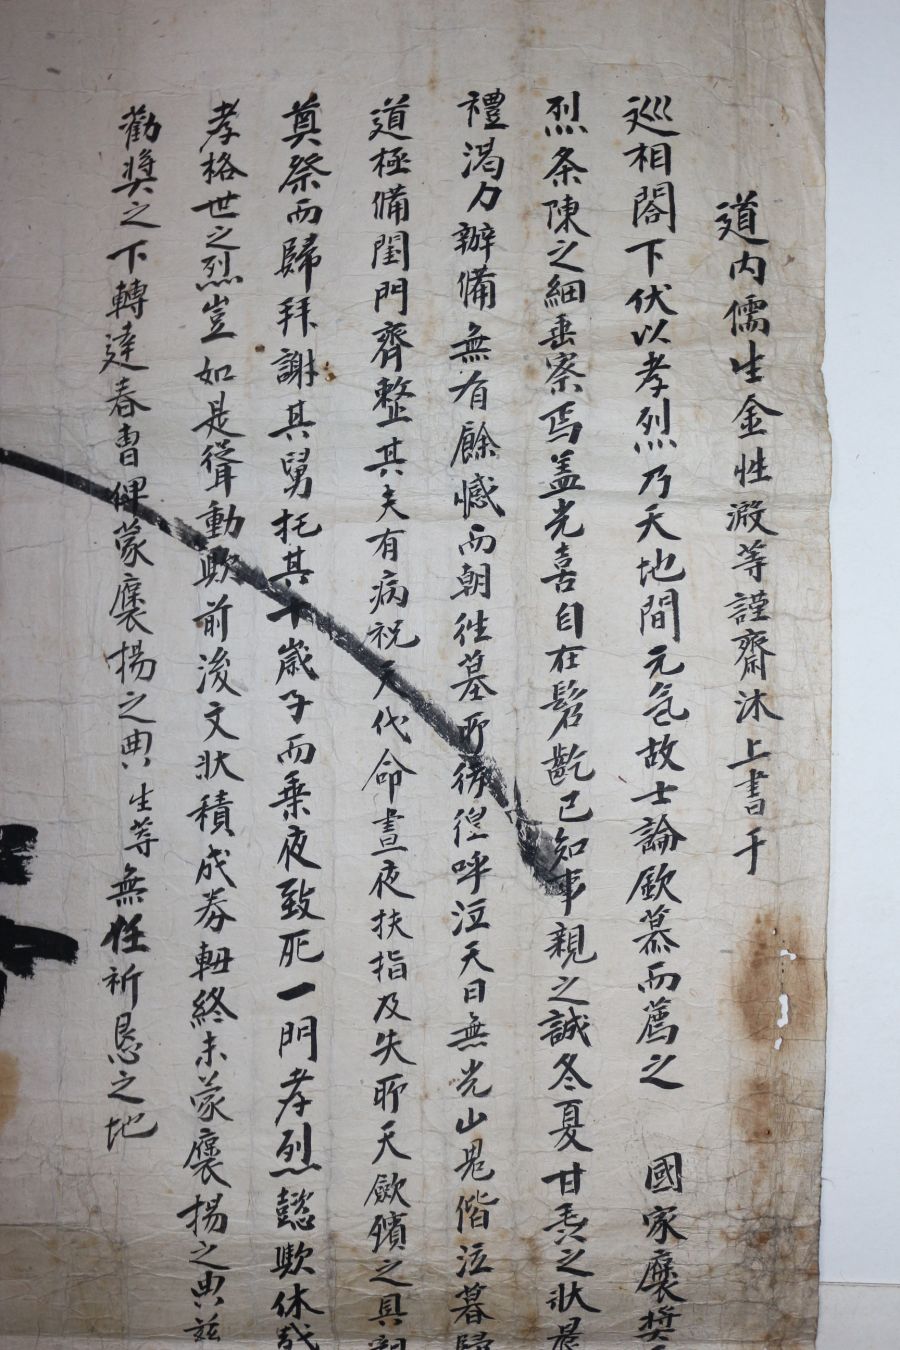 道內儒生金性澱等謹齋沐上書于
巡相閤下伏以孝烈乃天地間元氣故士論欽慕而薦之 國家襃奬
烈条陳之細垂察焉盖光喜自在髫齔已知事親之誠冬夏甘旨之状
禮渴力辦備無有餘憾而朝徃墓所彷徨呼泣天日無光山鬼偕泣暮歸
道極備閨門齊整其夫有病祝天代命晝夜扶指及失所天歛殯之具
奠祭而歸拜謝其舅托其十歲子而乗夜致死一門孝烈懿歟休哉
孝格世之烈豈如是聳動歟前後文状積成券軸終未蒙襃揚之典玆
勸奬之下轉達春曺俾蒙襃揚之典生等無任祈恳之地